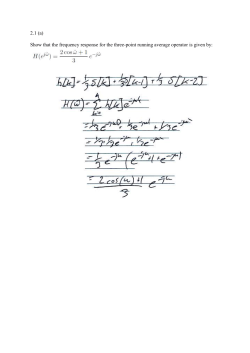 2.1 (a)
Show that the frequency response for the three-point running average operator is given by:
H(e^{jω̂}) = (2 cos ω̂ + 1)/3 e^{-jω̂}
h[k] = 1/3 δ[k] + 1/3 δ[k-1] + 1/3 δ[k-2]
H(ω̂) = Σ h[k] e^{-jω̂k}
= 1/3 e
= 1/3 e^{-jω̂} (e^{jω̂} + 1 + e^{-jω̂})
= (2 cos(ω̂) + 1)/3 e^{-jω̂}